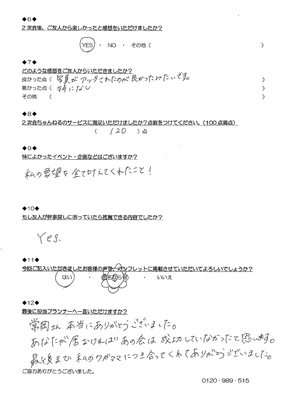 ◆6◆
2次会後、ご友人から楽しかったと感想をいただけましたか?
( YES ・ NO ・ その他( )
◆7◆
どのような感想をご友人からいただきましたか?
良かった点( 写真がアップされたのが良かったみたいです。
悪かった点( 特になし
その他 (
◆8◆
2次会ちゃんねるのサービスに満足いただけましたか?点数をつけてください。(100点満点)
( 120 )点
◆9◆
特によかったイベント・企画などはございますか?
私の要望を全て叶えてくれたこと!
◆10◆
もし友人が幹事探しに困っていたら推薦できる内容でしたか?
Yes.
◆11◆
今回ご記入いただきましたお客様の声を、パンフレットに掲載させていただいてよろしいでしょうか?
( はい ・ ・ いいえ
◆12◆
最後に担当プランナーへ一言いただけますか?
常岡さん 本当にありがとうございました。
あなたが居なければあの会は成功していなかったと思います。
最後まで 私のワガママにつき合ってくれてありがとうございました。
ご協力ありがとうございました。
0120-989-515